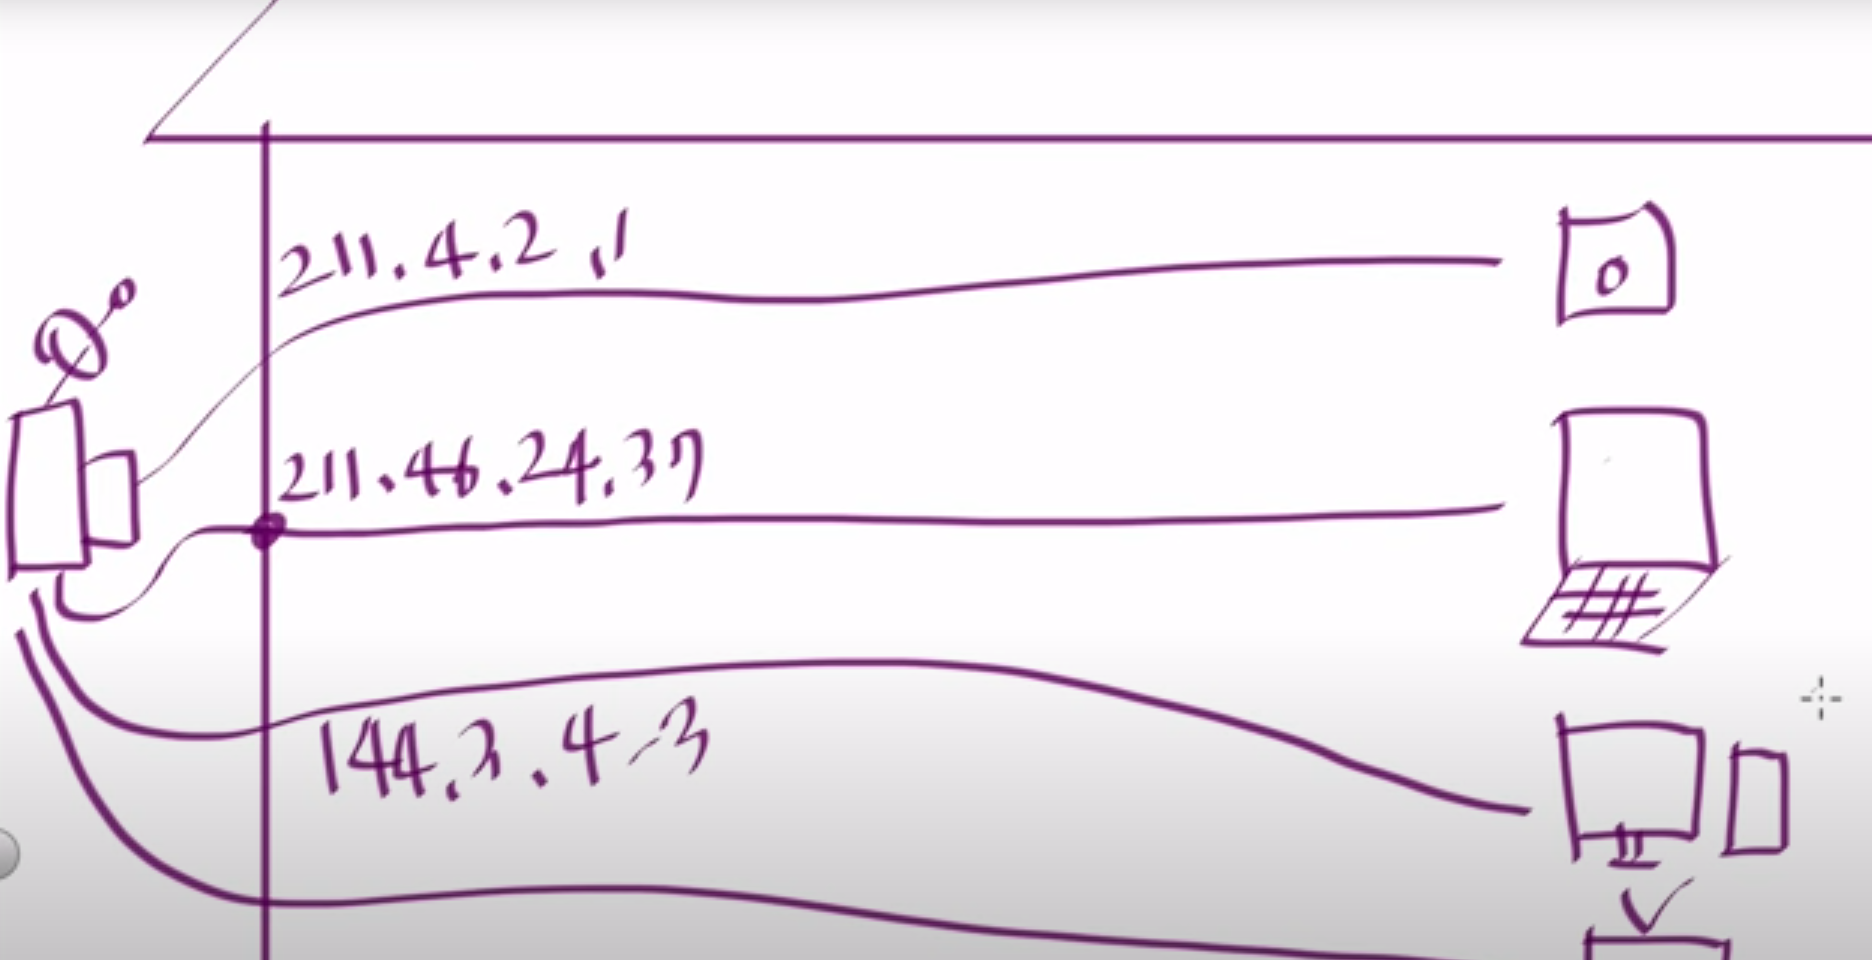 211.4.2.1
211.46.24.37
144.3.4.3